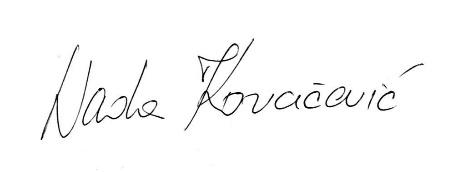 Nada Kovačević